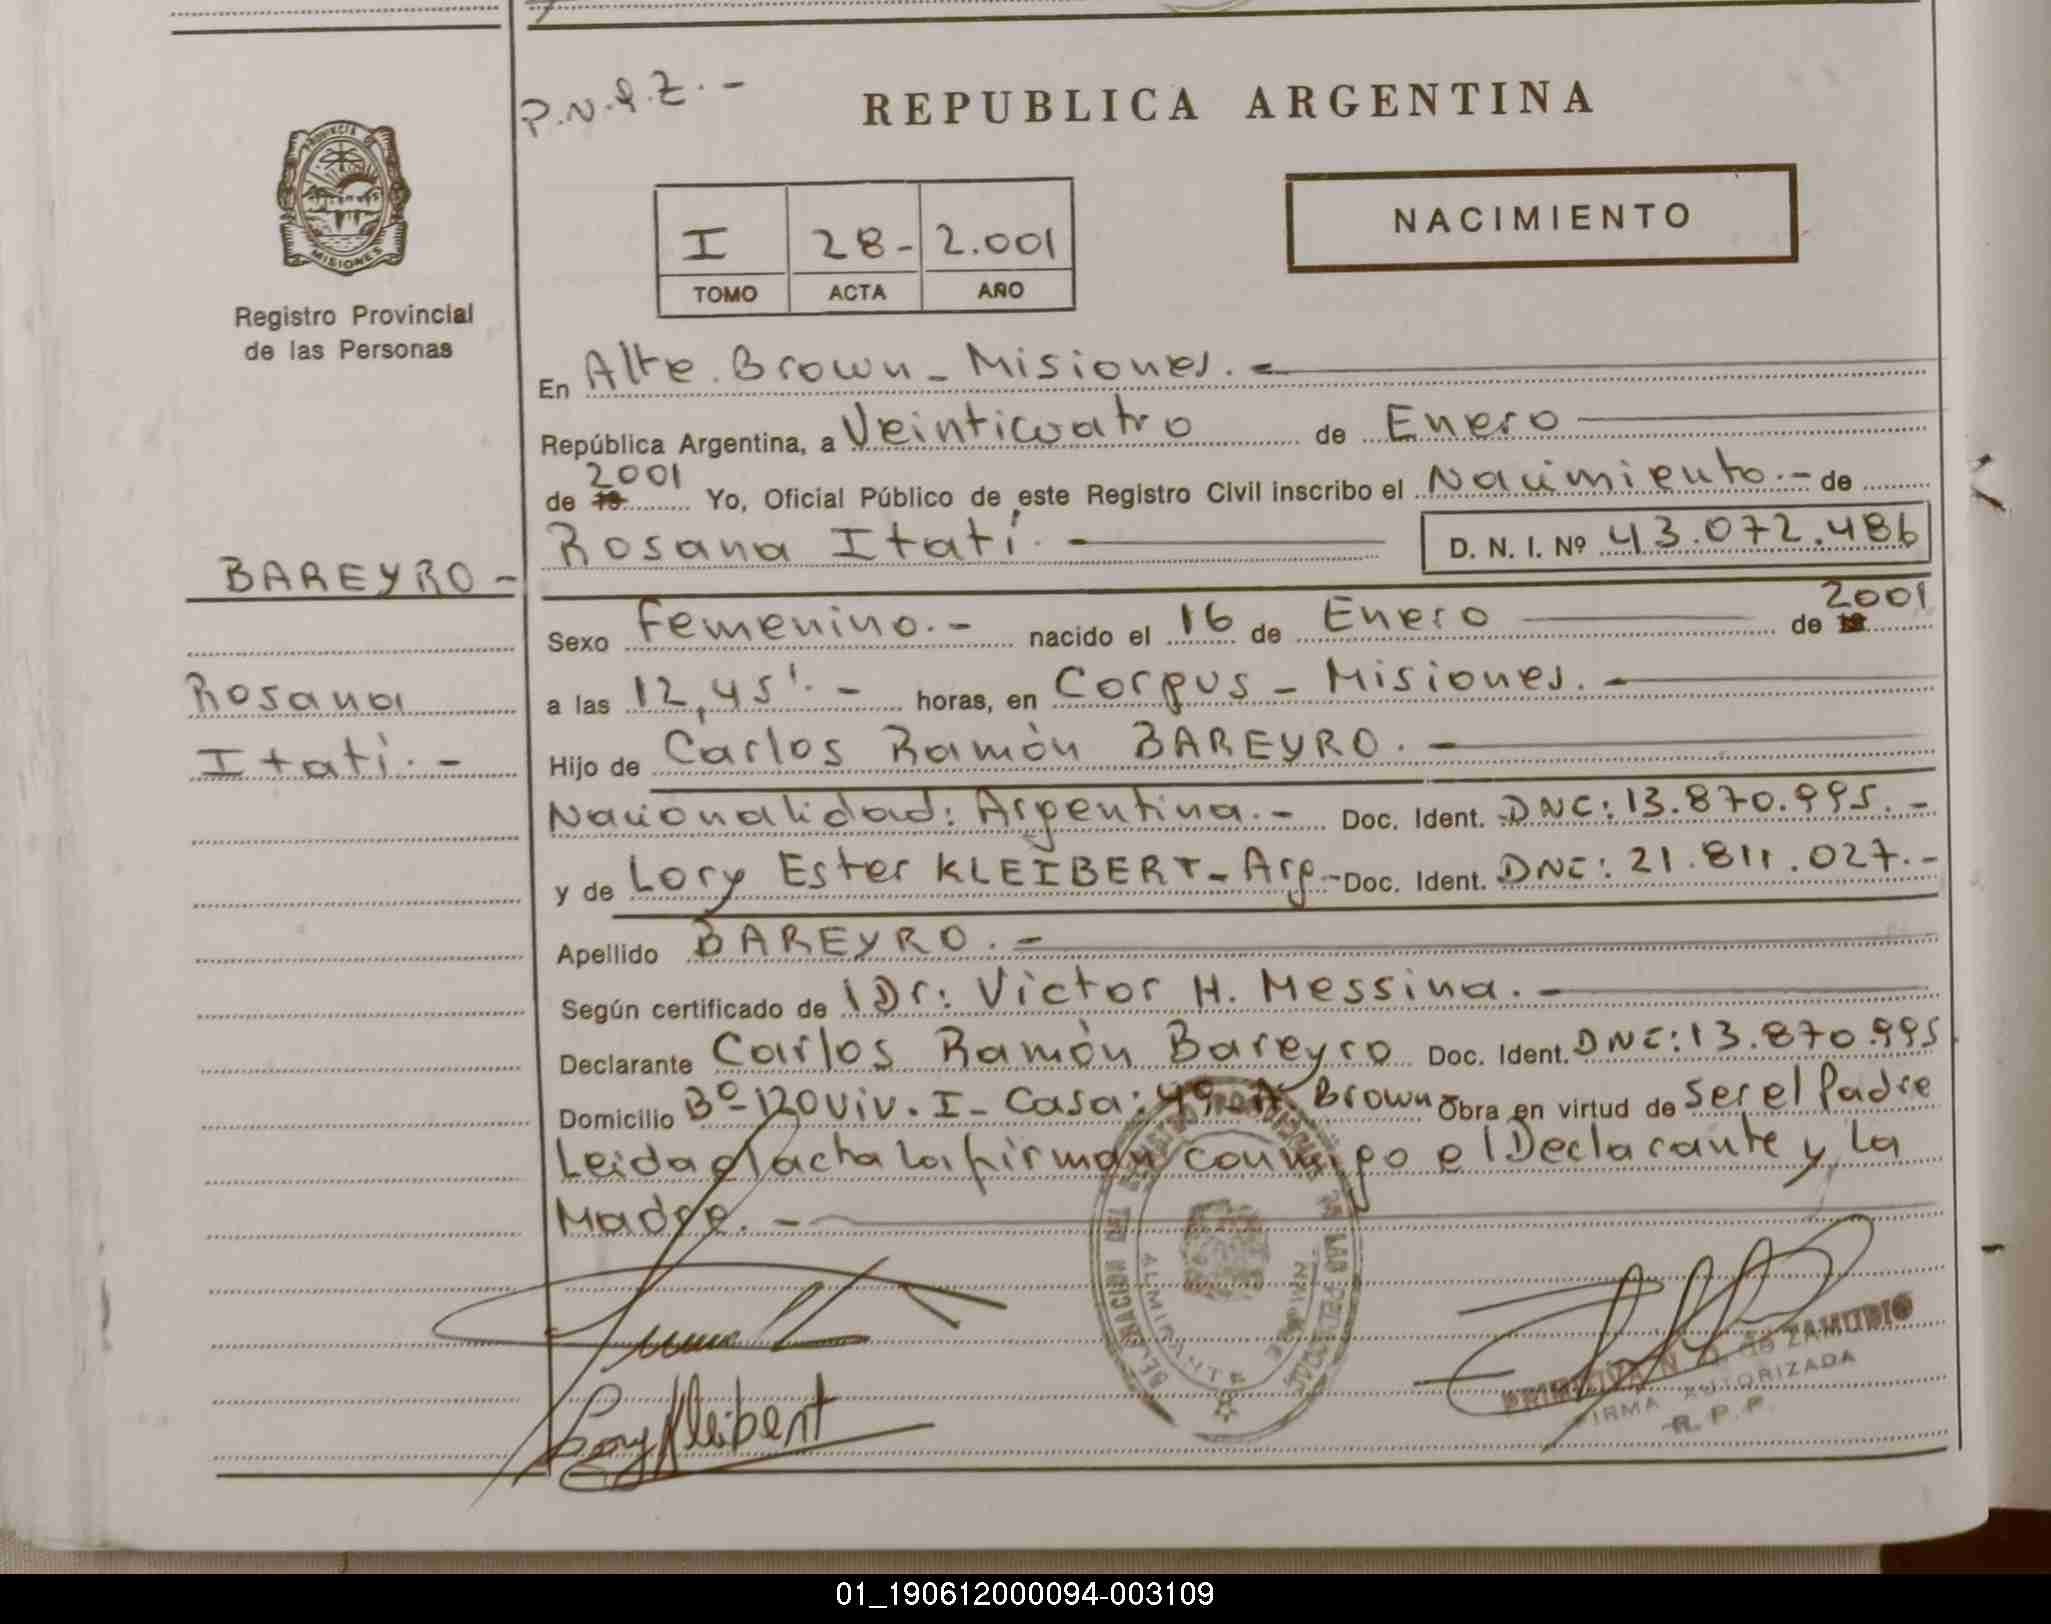 P.N.&.Z.-
REPUBLICA ARGENTINA
PROVINCIA DE
MISIONES
Registro Provincial
de las Personas
I 28- 2.001
TOMO ACTA AÑO
NACIMIENTO
En Alte. Brown - Misiones. -
República Argentina, a Veinticuatro de Enero
de 19 2001 Yo, Oficial Público de este Registro Civil inscribo el Nacimiento.- de
Rosana Itatí. - D. N. I. Nº 43.072.486
BAREYRO -
Rosana
Itatí. -
Sexo Femenino. - nacido el 16 de Enero de 19 2001
a las 12,45'. - horas, en Corpus - Misiones. -
Hijo de Carlos Ramón BAREYRO. -
Nacionalidad: Argentina. - Doc. Ident. DNC: 13.870.995. -
y de Lory Ester KLEIBERT - Arg - Doc. Ident. DNC: 21.811.027. -
Apellido BAREYRO. -
Según certificado de Dr: Victor H. Messina. -
Declarante Carlos Ramón Bareyro Doc. Ident. DNC: 13.870.995
Domicilio Bº-120 viv. I - Casa: 49 - A. Brown Obra en virtud de Ser el Padre
Leida el acta la firman conmigo el Declarante y La
Madre. -
ALMIRANTE
Lory Kleibert
ZAMUDIO
FIRMA AUTORIZADA
R. P. P.
01_190612000094-003109